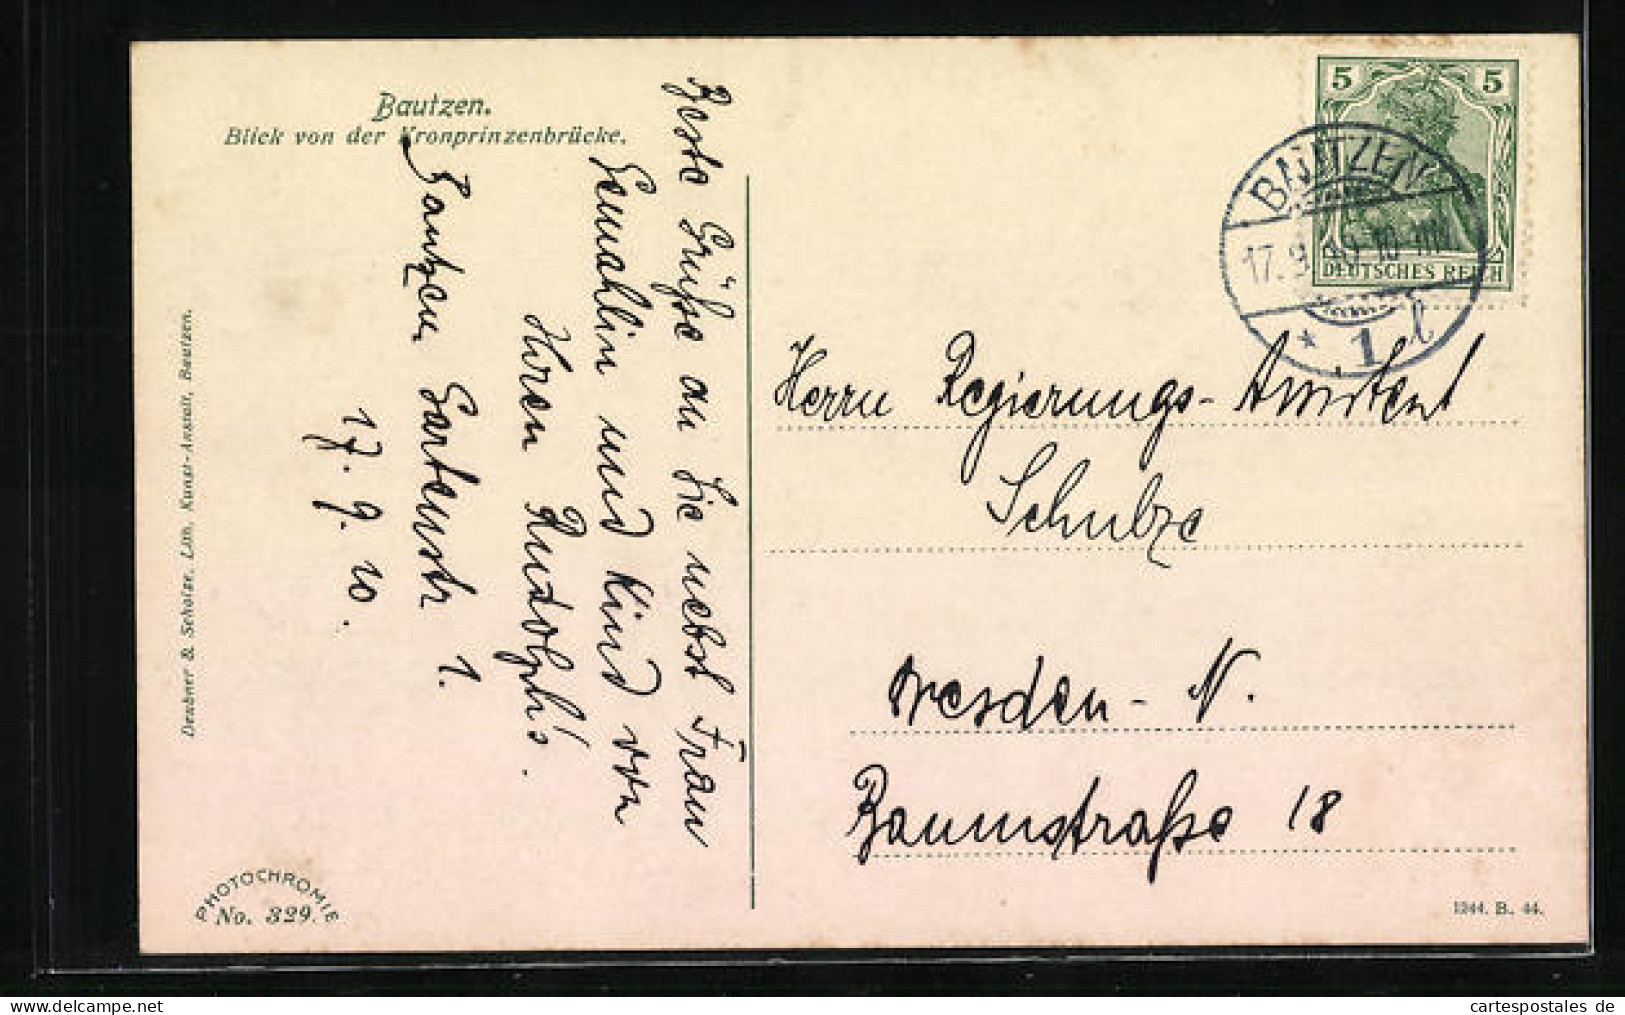 Bautzen.
Blick von der Kronprinzenbrücke.
Beste Grüße an Sie nebst Frau
Gemahlin und Kind von
Ihren Rudolph's.
Bautzen Gartenstr 1.
17. 9. 10.
Deubner & Scholze, Lith. Kunst-Anstalt, Bautzen.
PHOTOCHROMIE
No. 329.
5 5
DEUTSCHES REICH
BAUTZEN
17. 9. 10
* 1 l
Herrn Regierungs-Assistent
Schulze
Dresden-N.
Baumstraße 18
1244. B. 44.
cartespostales de